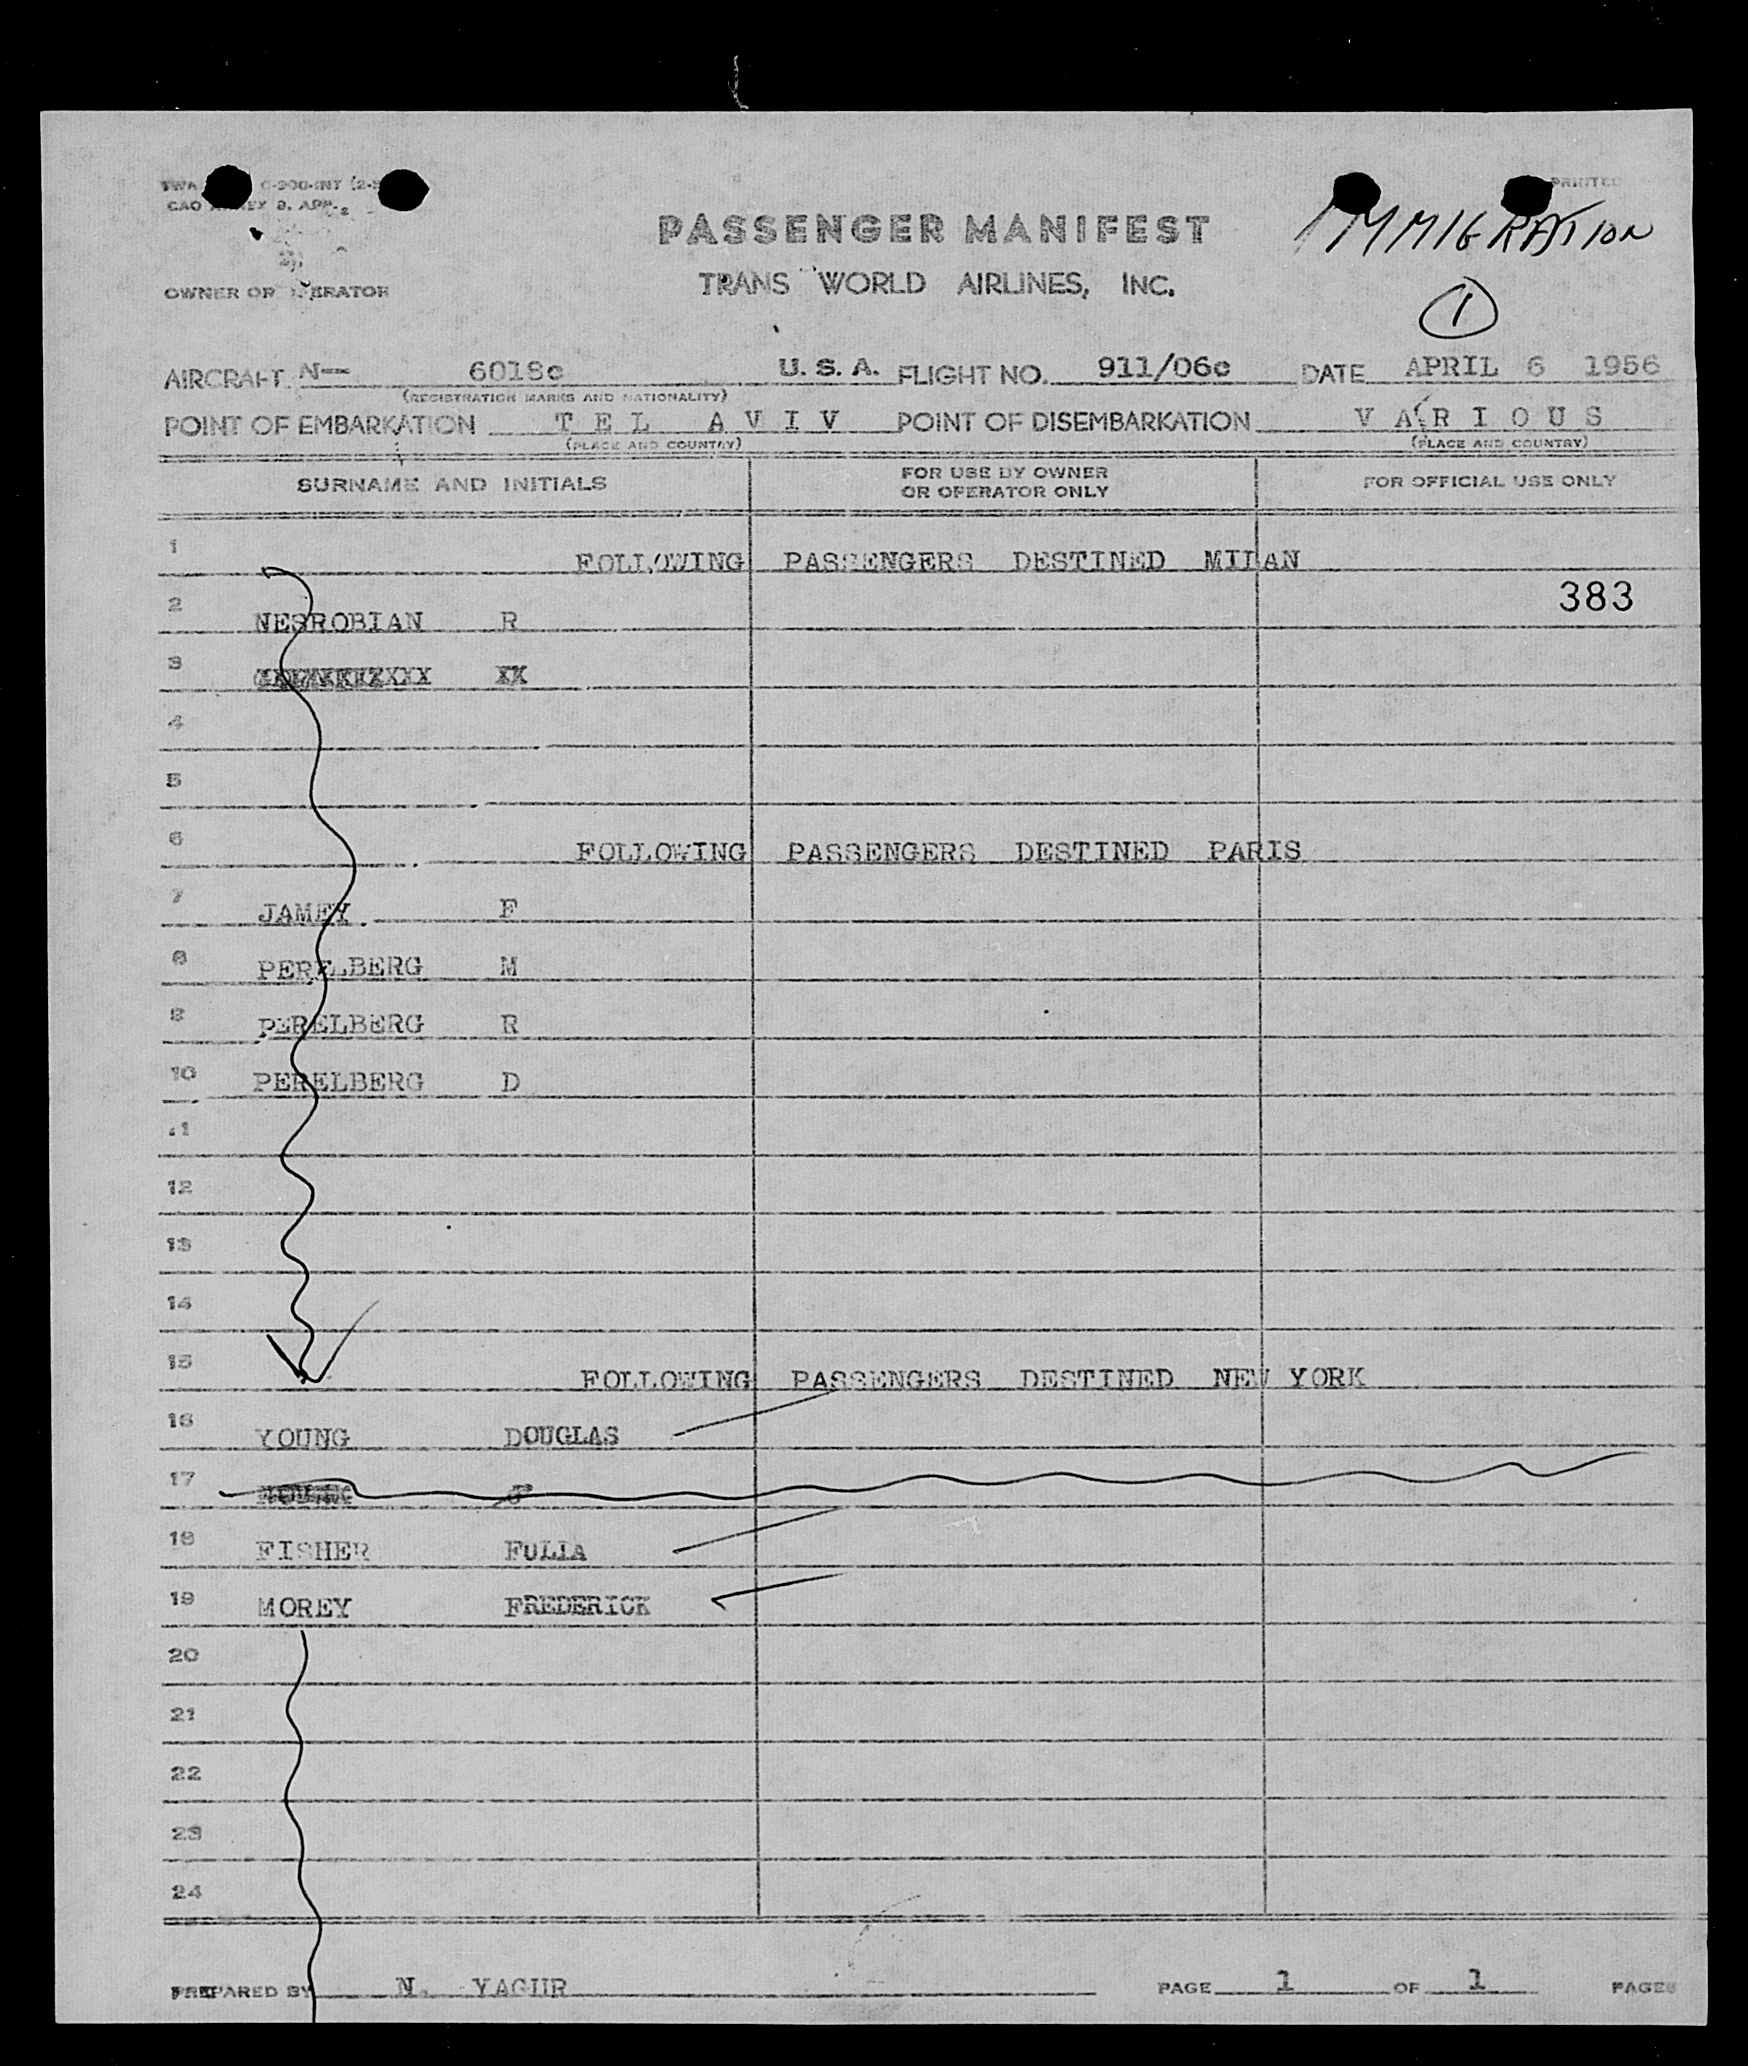 TWA C-300-INT (2-5
PRINTED
CAO ANNEX 9, APP. 2
PASSENGER MANIFEST
IMMIGRATION
TRANS WORLD AIRLINES, INC.
OWNER OR OPERATOR
1
AIRCRAFT N-- 6018c U.S.A. FLIGHT NO. 911/06c DATE APRIL 6 1956
(REGISTRATION MARKS AND NATIONALITY)
POINT OF EMBARKATION TEL AVIV POINT OF DISEMBARKATION VARIOUS
(PLACE AND COUNTRY) (PLACE AND COUNTRY)
SURNAME AND INITIALS FOR USE BY OWNER OR OPERATOR ONLY FOR OFFICIAL USE ONLY
1 FOLLOWING PASSENGERS DESTINED MILAN
383
2 NESROBIAN R
3 XX
4
5
6 FOLLOWING PASSENGERS DESTINED PARIS
7 JAMEY F
8 PERELBERG M
9 PERELBERG R
10 PERELBERG D
11
12
13
14
15 FOLLOWING PASSENGERS DESTINED NEW YORK
16 YOUNG DOUGLAS
17
18 FISHER FULIA
19 MOREY FREDERICK
20
21
22
23
24
PREPARED BY N. YAGUR PAGE 1 OF 1 PAGES